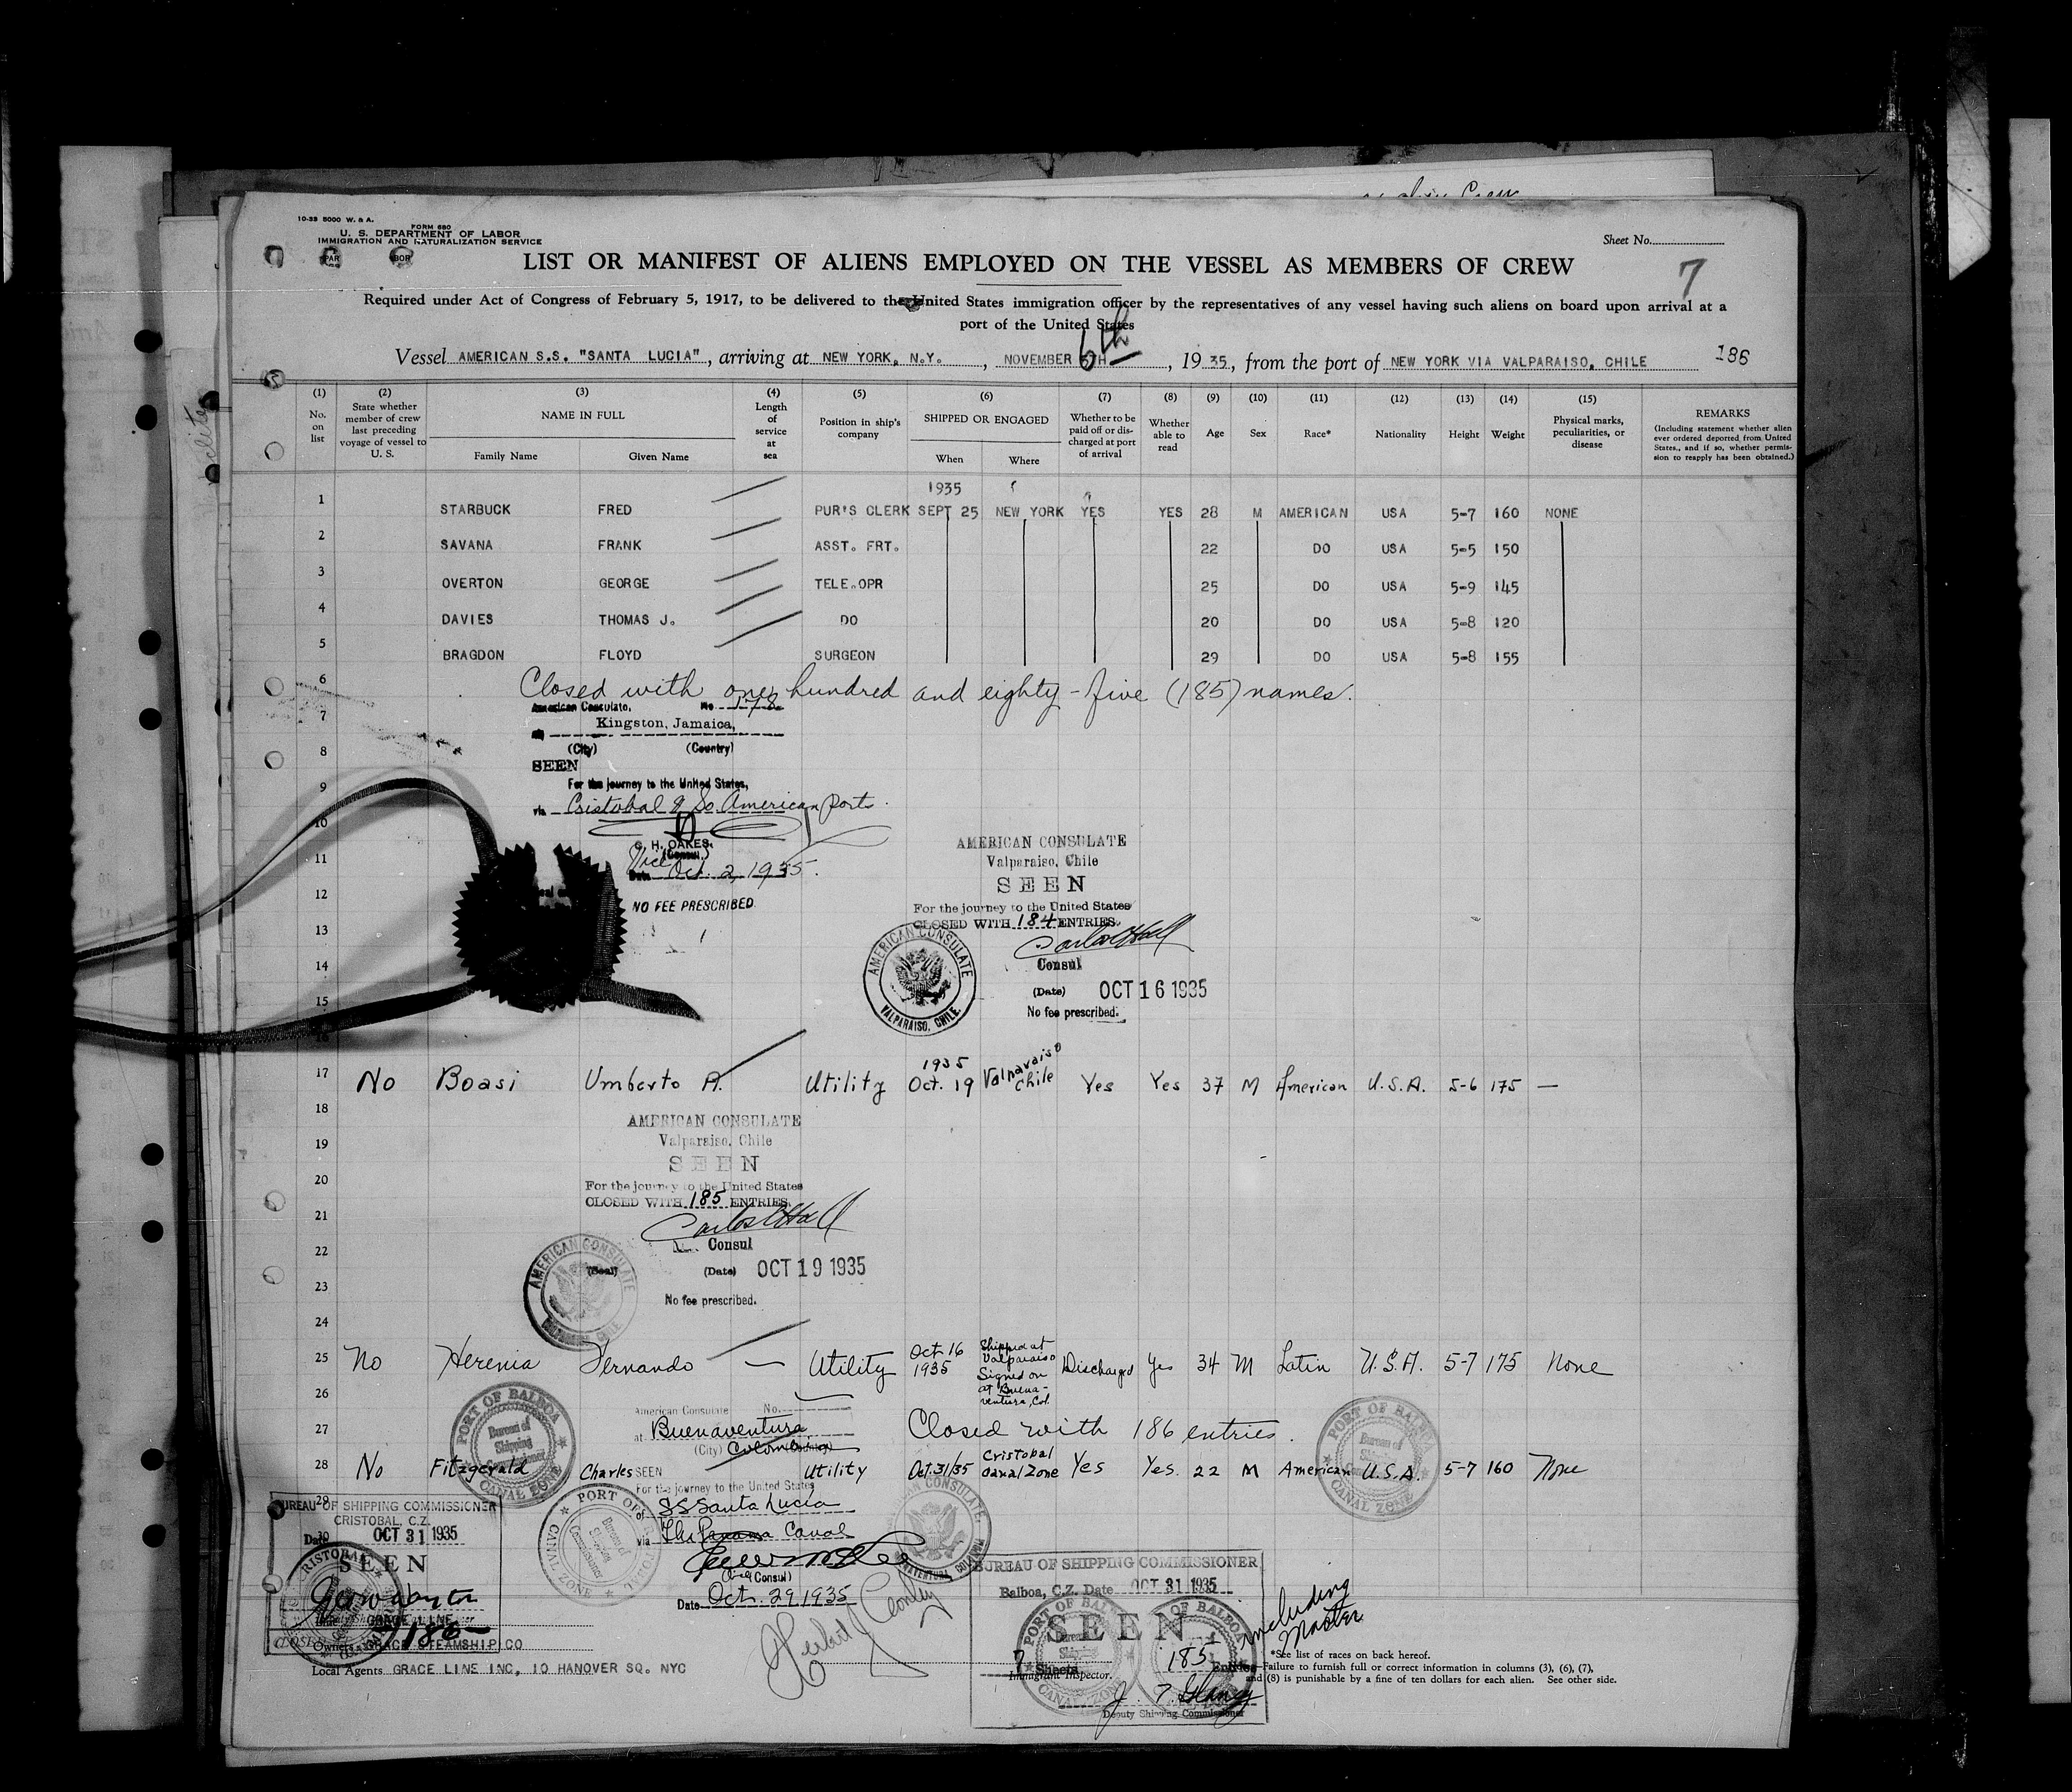 10-33 5000 W. & A.
FORM 680
U. S. DEPARTMENT OF LABOR
IMMIGRATION AND NATURALIZATION SERVICE
Sheet No.
7
LIST OR MANIFEST OF ALIENS EMPLOYED ON THE VESSEL AS MEMBERS OF CREW
Required under Act of Congress of February 5, 1917, to be delivered to the United States immigration officer by the representatives of any vessel having such aliens on board upon arrival at a
port of the United States
6th
Vessel AMERICAN S.S. "SANTA LUCIA", arriving at NEW YORK, N.Y., NOVEMBER 5TH, 1935, from the port of NEW YORK VIA VALPARAISO, CHILE 186
(1) No. on list
(2) State whether member of crew last preceding voyage of vessel to U. S.
(3) NAME IN FULL Family Name Given Name
(4) Length of service at sea
(5) Position in ship's company
(6) SHIPPED OR ENGAGED When Where
(7) Whether to be paid off or discharged at port of arrival
(8) Whether able to read
(9) Age
(10) Sex
(11) Race*
(12) Nationality
(13) Height
(14) Weight
(15) Physical marks, peculiarities, or disease
REMARKS (Including statement whether alien ever ordered deported from United States, and if so, whether permission to reapply has been obtained.)
1935
1 STARBUCK FRED PUR'S CLERK SEPT 25 NEW YORK YES YES 28 M AMERICAN USA 5-7 160 NONE
2 SAVANA FRANK ASST. FRT. 22 DO USA 5-5 150
3 OVERTON GEORGE TELE.OPR 25 DO USA 5-9 145
4 DAVIES THOMAS J. DO 20 DO USA 5-8 120
5 BRAGDON FLOYD SURGEON 29 DO USA 5-8 155
6 Closed with one hundred and eighty-five (185) names.
American Consulate, No. 178
7 Kingston, Jamaica,
8 (City) (Country)
SEEN
9 For the journey to the United States,
via Cristobal & So. American ports.
10
C. H. OAKES,
11 Vice (Consul)
Date Oct. 2, 1935.
12 NO FEE PRESCRIBED
AMERICAN CONSULATE
Valparaiso, Chile
SEEN
For the journey to the United States
CLOSED WITH 184 ENTRIES.
13
Carlos C Hall
14 Consul
(Date) OCT 16 1935
15 No fee prescribed.
AMERICAN CONSULATE
VALPARAISO, CHILE.
16
17 No Boasi Umberto A. Utility 1935 Oct. 19 Valparaiso Chile Yes Yes 37 M American U.S.A. 5-6 175 —
18
AMERICAN CONSULATE
19 Valparaiso, Chile
SEEN
20 For the journey to the United States
CLOSED WITH 185 ENTRIES.
21 Carlos C Hall
22 Consul
(Seal) (Date) OCT 19 1935
23 No fee prescribed.
AMERICAN CONSULATE
24
25 No Herenia Fernando — Utility Oct 16 1935 Shipped at Valparaiso Signed on at Buena-ventura, Col. Discharged Yes 34 M Latin U.S.A. 5-7 175 None
26
PORT OF BALBOA
Bureau of Shipping Commissioner
CANAL ZONE
American Consulate No.
27 at Buenaventura Closed with 186 entries.
(City) Colombia (Country)
PORT OF BALBOA
CANAL ZONE
28 No Fitzgerald Charles Utility Oct. 31/35 Cristobal Canal Zone Yes Yes. 22 M American U.S.A. 5-7 160 None
SEEN
For the journey to the United States
of SS Santa Lucia
via The Panama Canal
(Consul)
Date Oct. 29, 1935
29
BUREAU OF SHIPPING COMMISSIONER
CRISTOBAL, C.Z.
30 Date OCT 31 1935
SEEN
GRACE LINE
186
CLOSED
Owners GRACE STEAMSHIP CO
Local Agents GRACE LINE INC, 10 HANOVER SQ. NYC
Herbert J Conley
Immigrant Inspector.
BUREAU OF SHIPPING COMMISSIONER
Balboa, C.Z. Date OCT 31 1935
SEEN
7 Sheets 185 Entries
including Master
Deputy Shipping Commissioner
*See list of races on back hereof.
Failure to furnish full or correct information in columns (3), (6), (7),
and (8) is punishable by a fine of ten dollars for each alien. See other side.